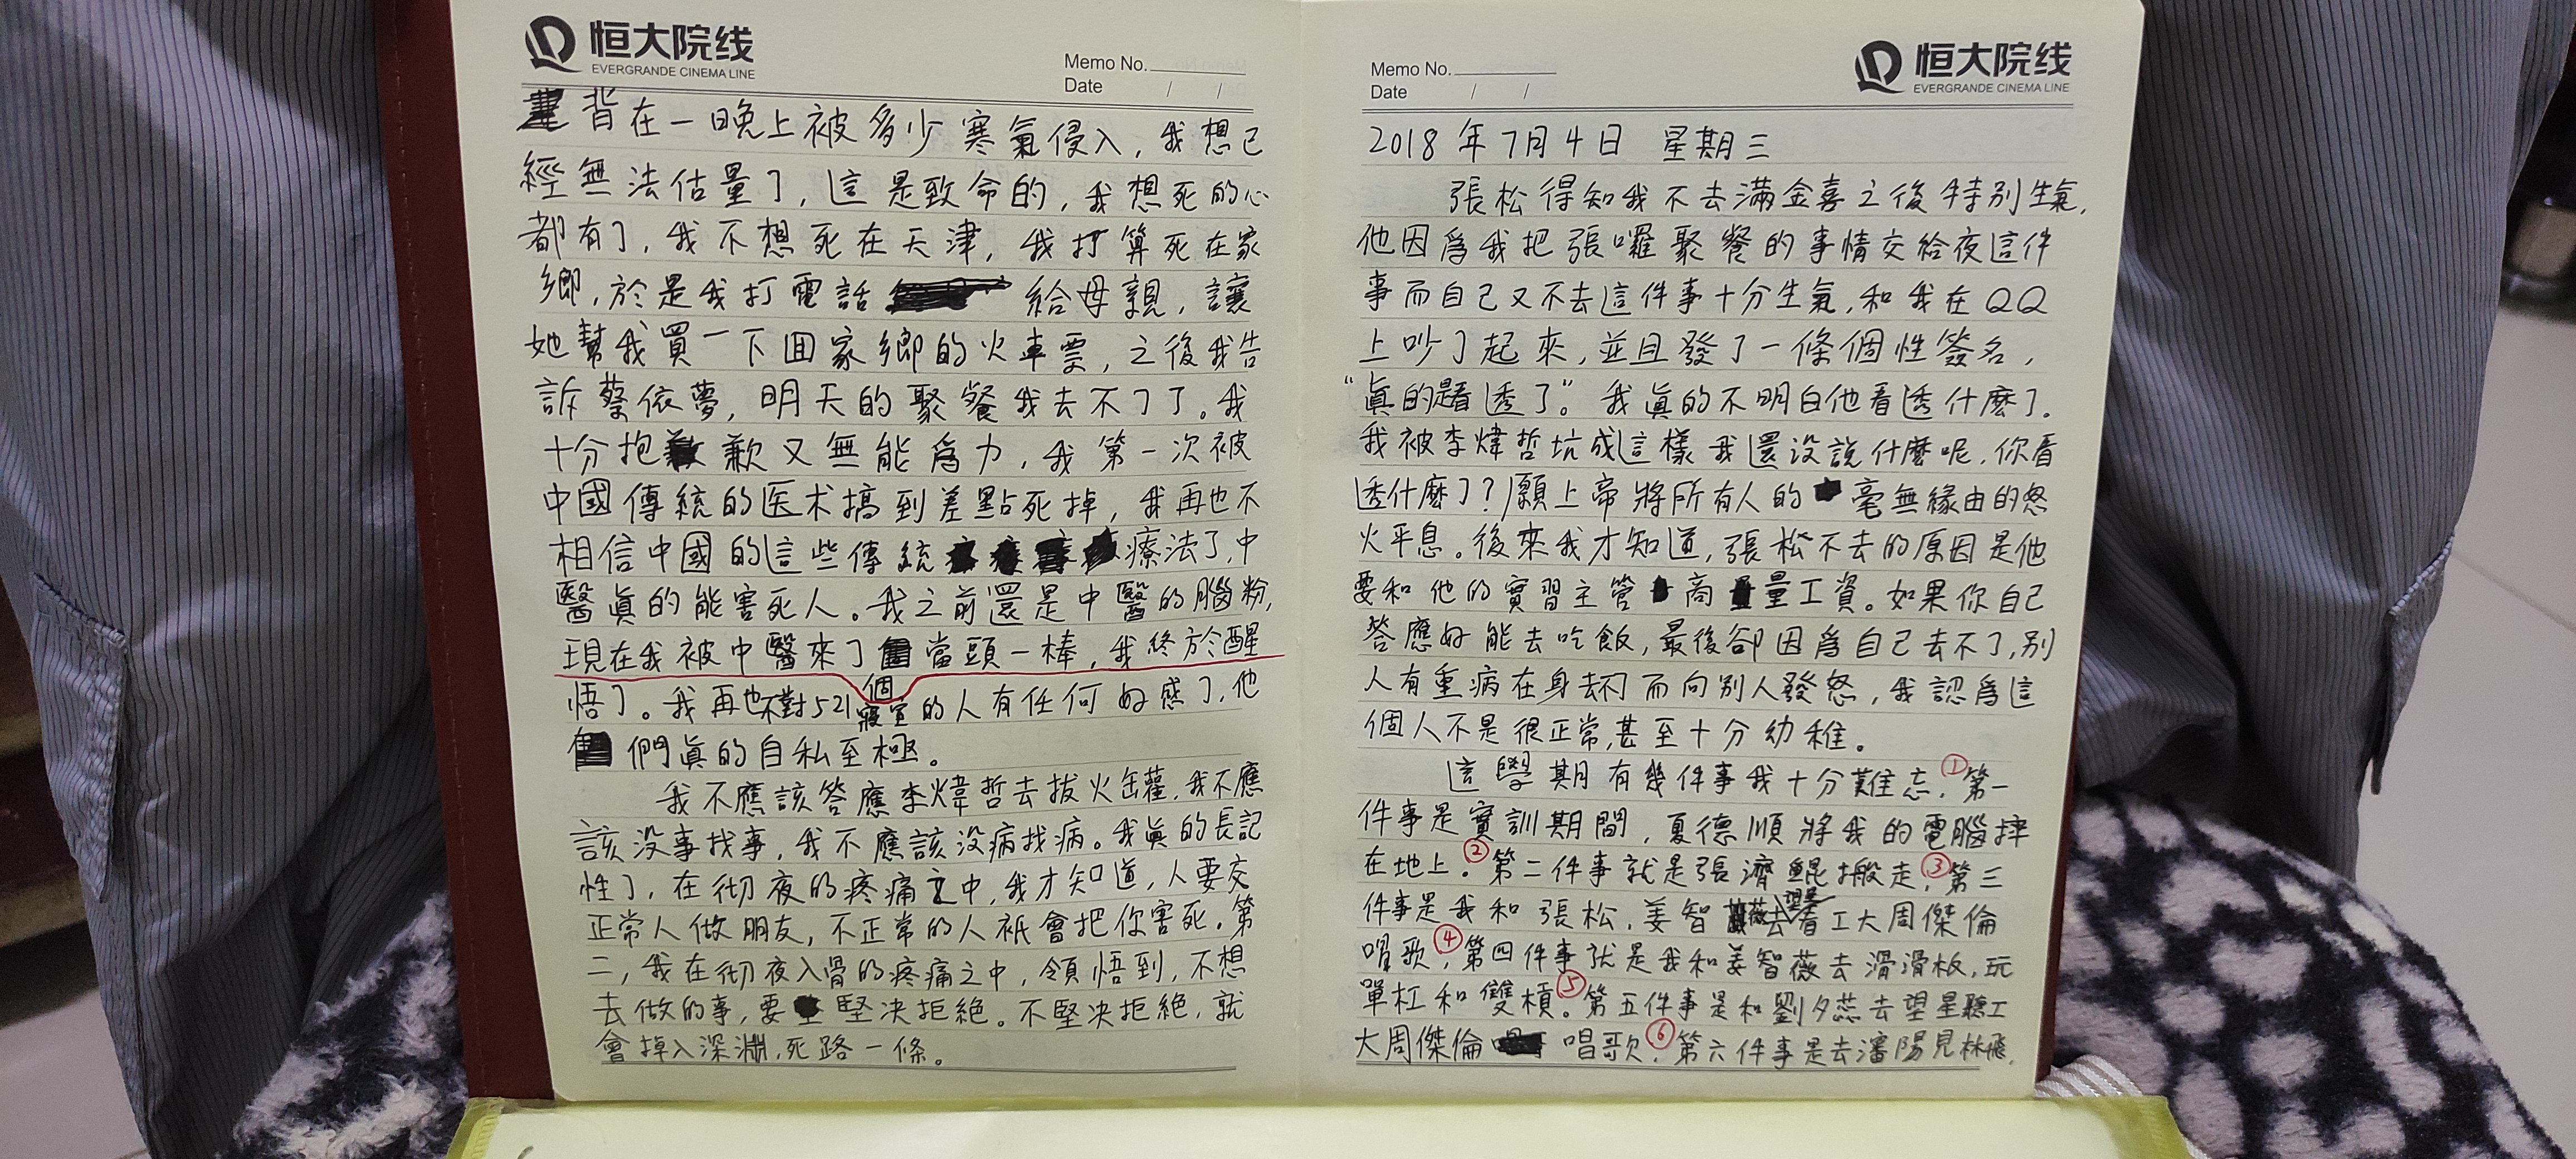 恒大院线
EVERGRANDE CINEMA LINE
Memo No.
Date / /
背在一晚上被多少寒氣侵入，我想已
經無法估量了，這是致命的，我想死的心
都有了，我不想死在天津，我打算死在家
鄉，於是我打電話 給母親，讓
她幫我買一下回家鄉的火車票，之後我告
訴蔡依夢，明天的聚餐我去不了了。我
十分抱歉又無能爲力，我第一次被
中國傳統的医术搞到差點死掉，我再也不
相信中國的這些傳統療法了，中
醫眞的能害死人。我之前還是中醫的腦粉，
現在我被中醫來了個當頭一棒，我終於醒
悟了。我再也不對521寢室的人有任何好感了，他
們眞的自私至極。
我不應該答應李煒哲去拔火罐，我不應
該没事找事，我不應該没病找病。我眞的長記
性了，在彻夜的疼痛之中，我才知道，人要交
正常人做朋友，不正常的人衹會把你害死。第
二，我在彻夜入骨的疼痛之中，領悟到，不想
去做的事，要堅决拒絕。不堅决拒絕，就
會掉入深淵，死路一條。
Memo No.
Date / /
恒大院线
EVERGRANDE CINEMA LINE
2018年7月4日 星期三
張松得知我不去滿金喜之後特别生氣，
他因爲我把張囉聚餐的事情交給夜這件
事而自己又不去這件事十分生氣，和我在QQ
上吵了起來，並且發了一條個性簽名，
“眞的是看透了”。我眞的不明白他看透什麽了。
我被李煒哲坑成這樣我還没說什麽呢，你看
透什麽了？願上帝將所有人的毫無緣由的怒
火平息。後來我才知道，張松不去的原因是他
要和他的實習主管商量工資。如果你自己
答應好能去吃飯，最後卻因爲自己去不了，别
人有重病在身去不了而向别人發怒，我認爲這
個人不是很正常，甚至十分幼稚。
這學期有幾件事我十分難忘，①第一
件事是實訓期間，夏德順將我的電腦摔
在地上。②第二件事就是張濟鲲搬走，③第三
件事是我和張松，姜智薇去望星看工大周傑倫
唱歌，④第四件事就是我和姜智薇去滑滑板，玩
單杠和雙槓。⑤第五件事是和劉夕蕊去望星聽工
大周傑倫 唱歌，⑥第六件事是去瀋陽見林飛，